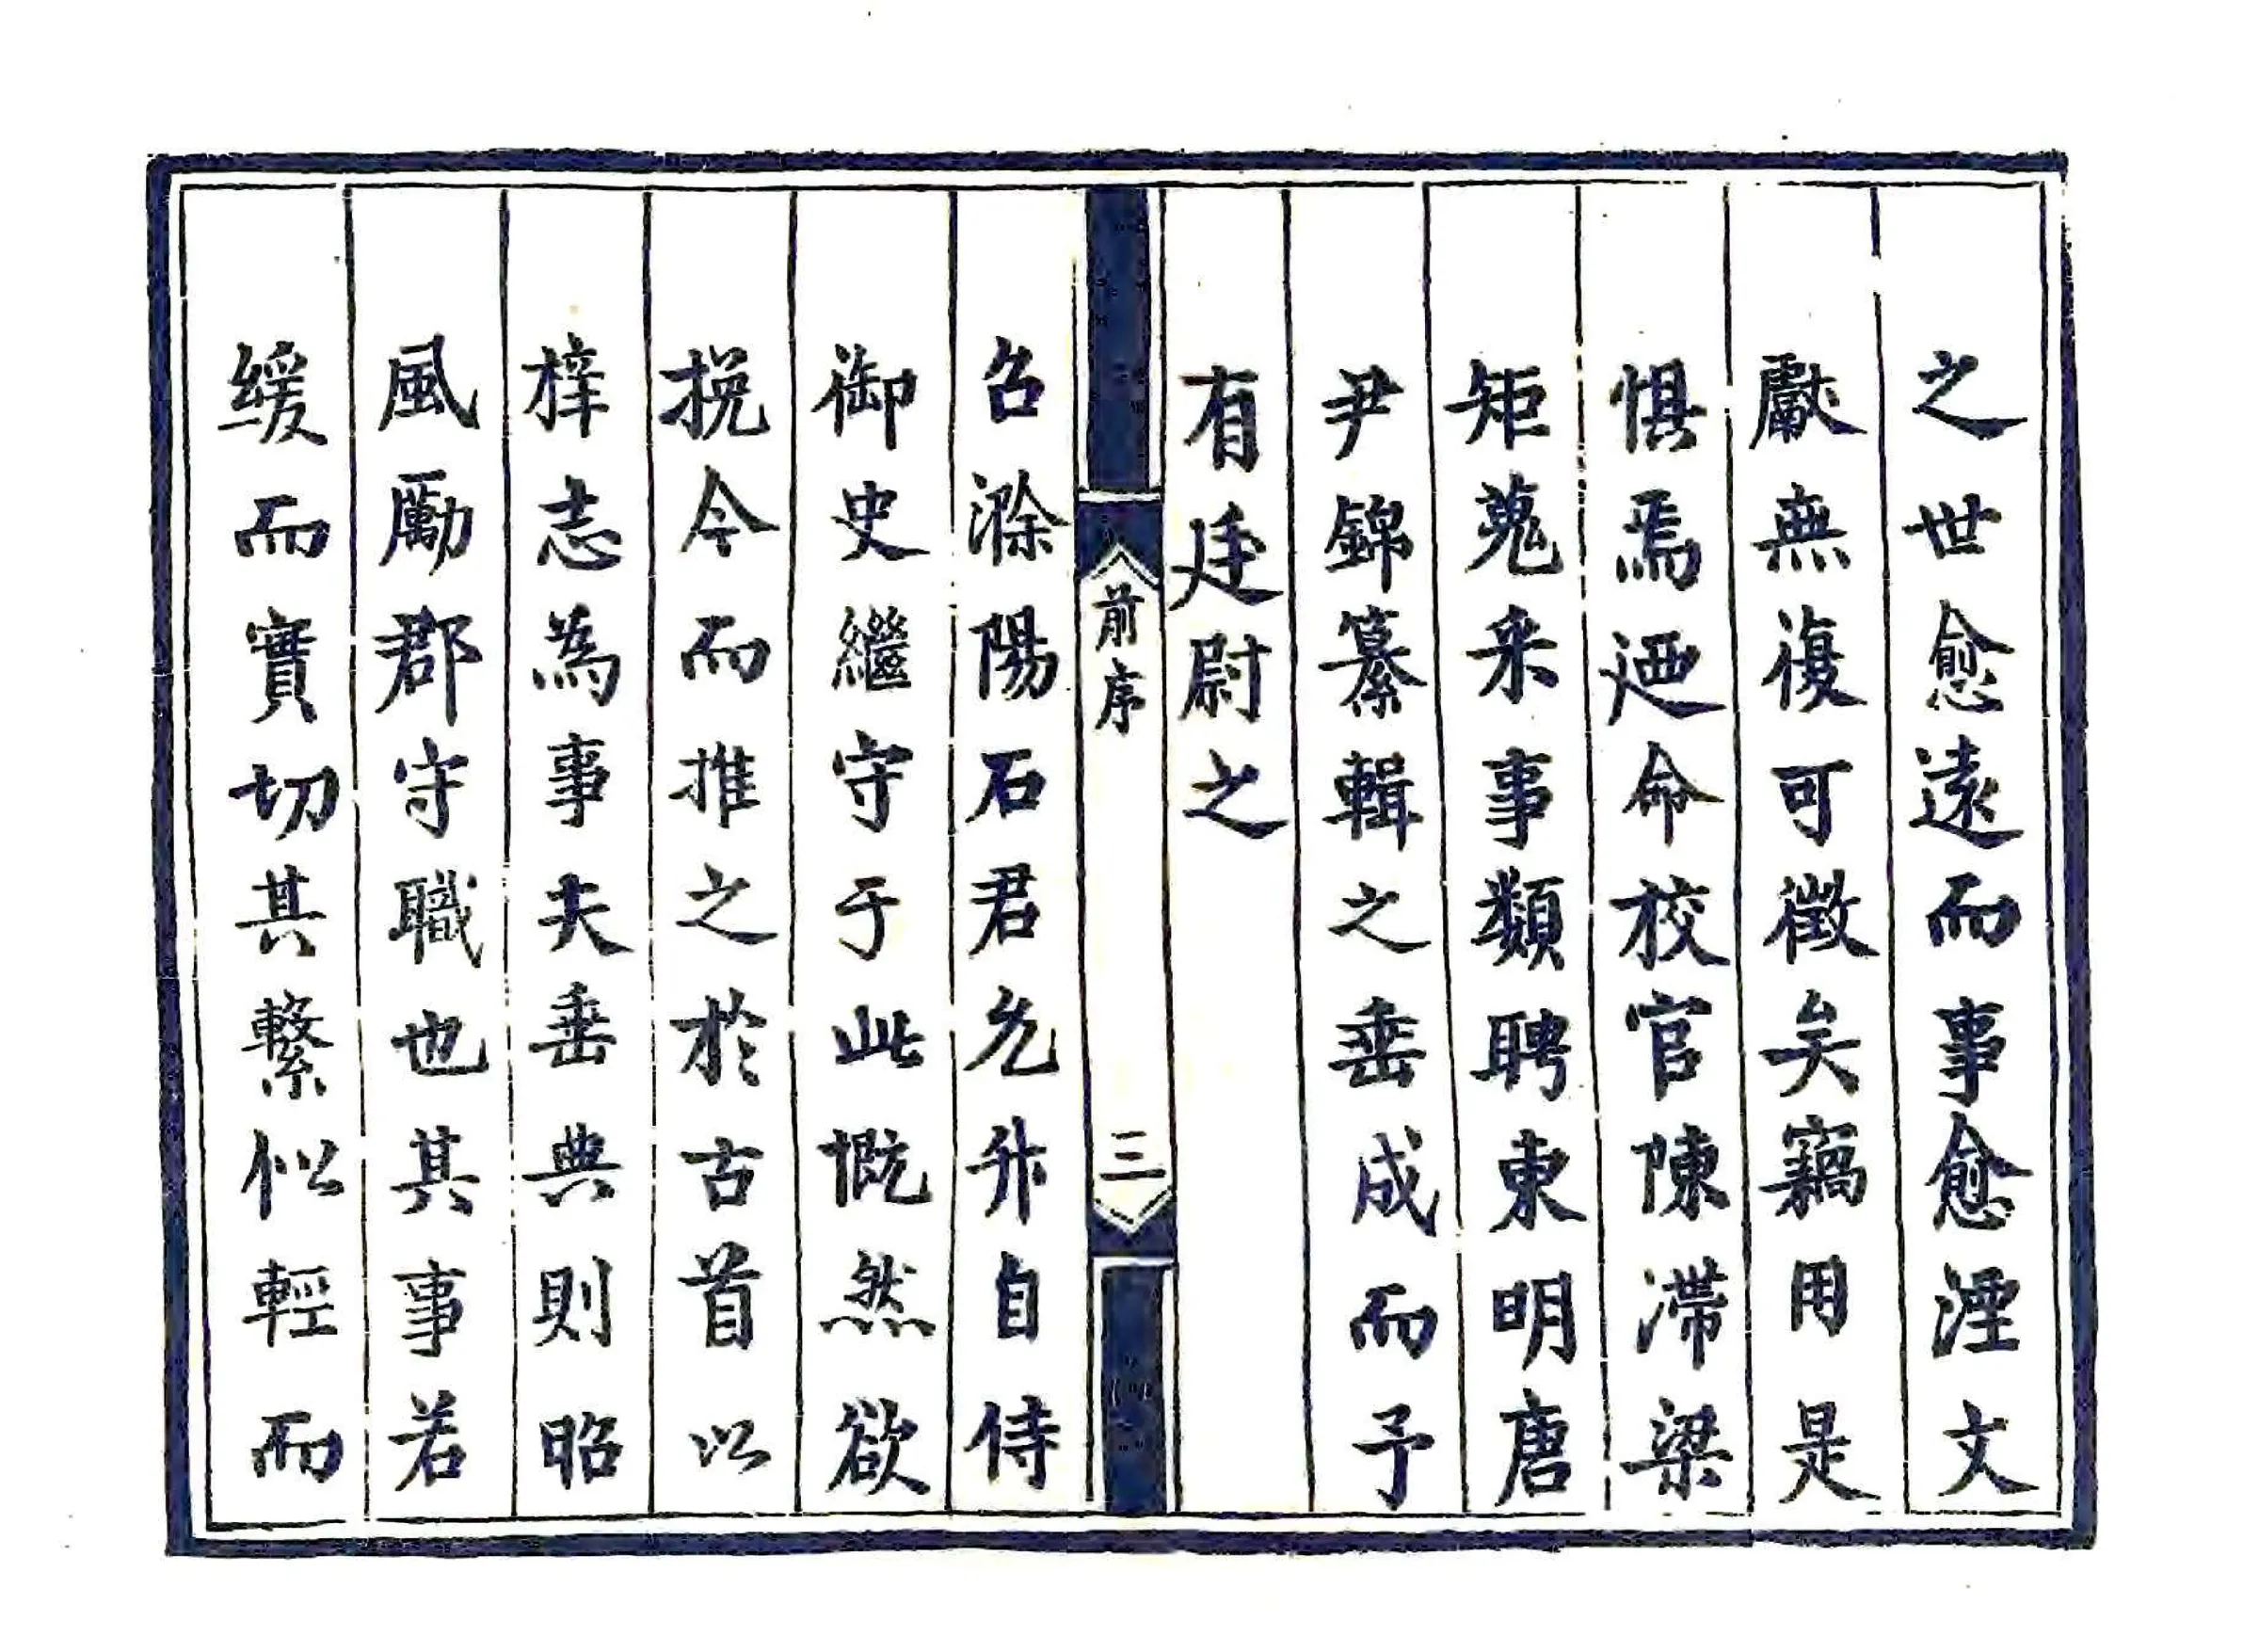 之世愈遠而事愈湮文
獻無復可徵矣竊用是
惧焉廼命校官陳滯梁
矩蒐采事類聘東明唐
尹錦纂輯之垂成而予
有廷尉之
前序
三
召滁陽石君允升自侍
御史繼守于此慨然欲
挽今而推之於古首以
梓志為事夫垂典則昭
風勵郡守職也其事若
緩而實切其繫似輕而